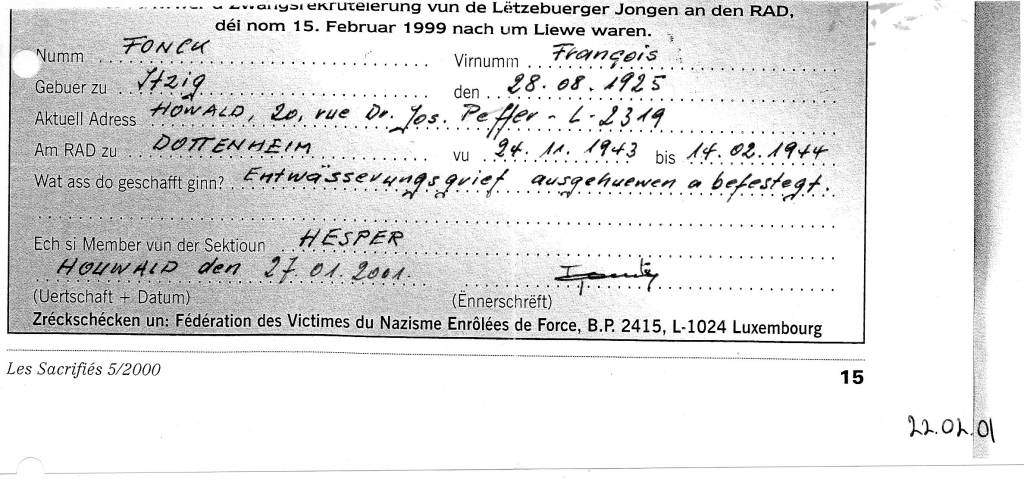 Zwangsrekrutéierung vun de Lëtzebuerger Jongen an den RAD,
déi nom 15. Februar 1999 nach um Liewe waren.
Numm FONCK Virnumm François
Gebuer zu Itzig den 28.08.1925
Aktuell Adress HOWALD, 20, rue Dr. Jos. Peffer - L-2319
Am RAD zu DOTTENHEIM vu 24.11.1943 bis 14.02.1944
Wat ass do geschafft ginn? Entwässerungsgrief ausgehuewen a befestegt.
Ech si Member vun der Sektioun HESPER
HOUWALD den 27.01.2001.
(Uertschaft + Datum) (Ënnerschrëft)
Zréckschécken un: Fédération des Victimes du Nazisme Enrôlées de Force, B.P. 2415, L-1024 Luxembourg
Les Sacrifiés 5/2000
15
22.02.01